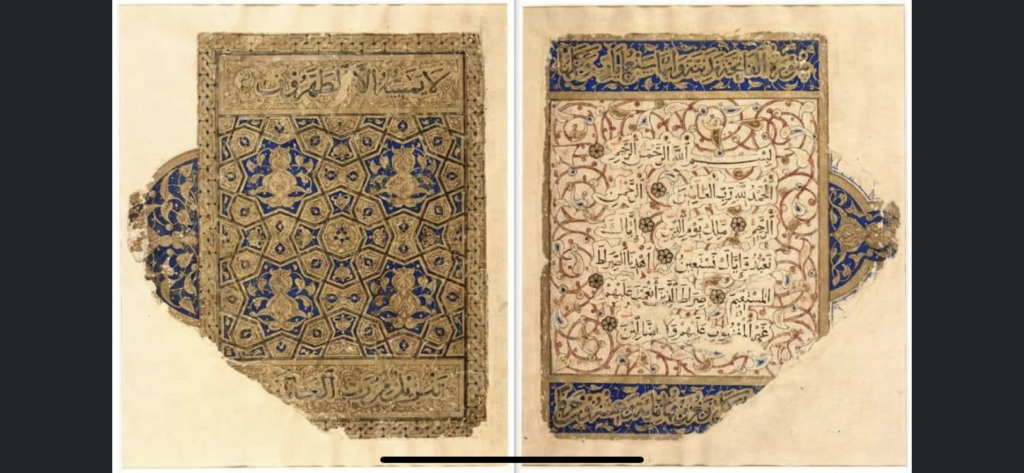 سورة الفاتحة
بسم الله الرحمن الرحيم
الحمد لله رب العلمين الرحمن
الرحيم ملك يوم الدين اياك
نعبد واياك نستعين اهدنا الصراط
المستقيم صراط الذين انعمت عليهم
غير المغضوب عليهم ولا الضالين
لا يمسه الا المطهرون
تنزيل من رب العا